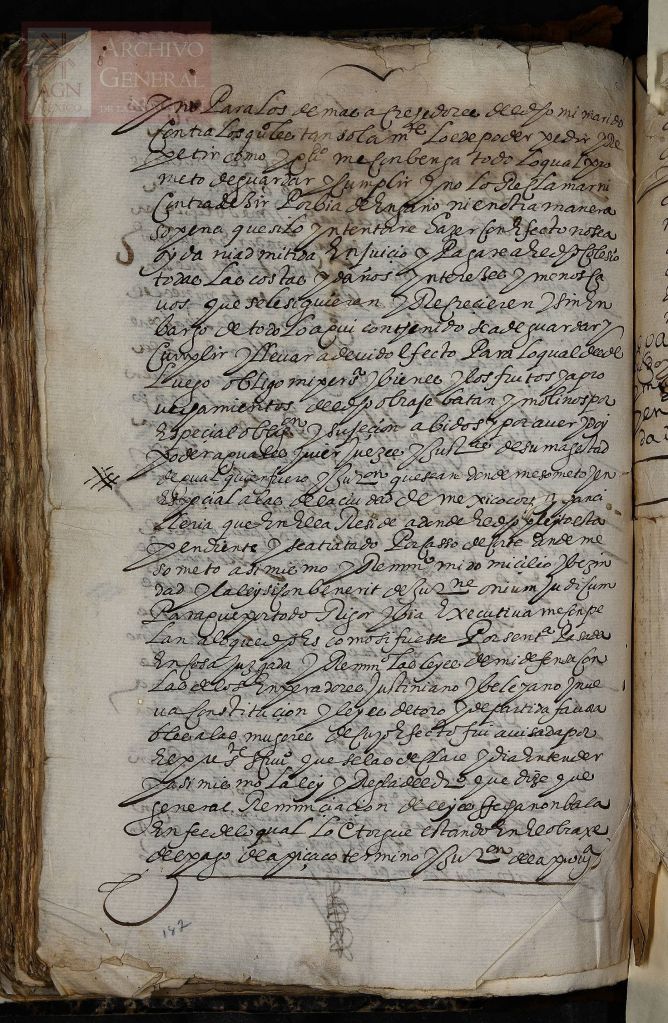 ARCHIVO
GENERAL
AGN
MÉXICO
y no Para Los demas acreedores del dho mi marido
contra Los q̃ les tan sola m.te Lo e de poder pedir y Re
petir como y q̃ me conbenga todo Lo qual pro
meto de guardar y cumplir y no Lo Reclamar ni
Contradeçir Por bia de Engaño ni en otra manera
so pena que si lo yntentare Haser con Efecto no sea
oyda ni admitida En juicio y Pagare a el dho Colesio
todas Las costas y daños yntereses y menos ca
vos que se le siguieren y Recrecieren y sin En
bargo de todo Lo aqui contenido se a de guardar y
Cumplir y llevar a devido Efecto Para Lo qual desde
Luego obligo mi pers.ª y bienes y los frutos y apro
vechamientos del dho obraje batan y molinos por
Especial oblig.on y sujeçion abidos y por aver y doy
Poder a quales quier jueces y justi.as de su magestad
de qual quier fuero y jur.on que sean donde me someto y en
Especial a las de la ciudad de mexico corte y chanci
lleria que En Ella Reside a donde El dho pleyto esta
pendiente y se a tratado Por casso de Corte donde me
someto asimismo y Renun.o mi domicilio y bezin
dad y la ley si conbenerit de jur.ne onium judicum
Para que por todo Rigor y bia Executiva me conpe
Lan a lo que dho Es como si fuesse Por sent.ª Pasada
En cosa juzgada y Renun.o Las leyes de mi defensa con
Las de los Enperadores Justiniano y beleyano y nue
va Constitucion y leyes de toro y de partida favora
bles a las mugeres de cuyo Efecto fui avisada por
El pres.te ss.no que se las declare y dia Entender
y asimismo La ley y Regla del d.ro que dize que
General Renunciacion de leyes ffecha non bala
En fee de lo qual Lo Otorgue estando En El obraxe
del pago de apiçaco termino y jur.on de la prov.ª
187